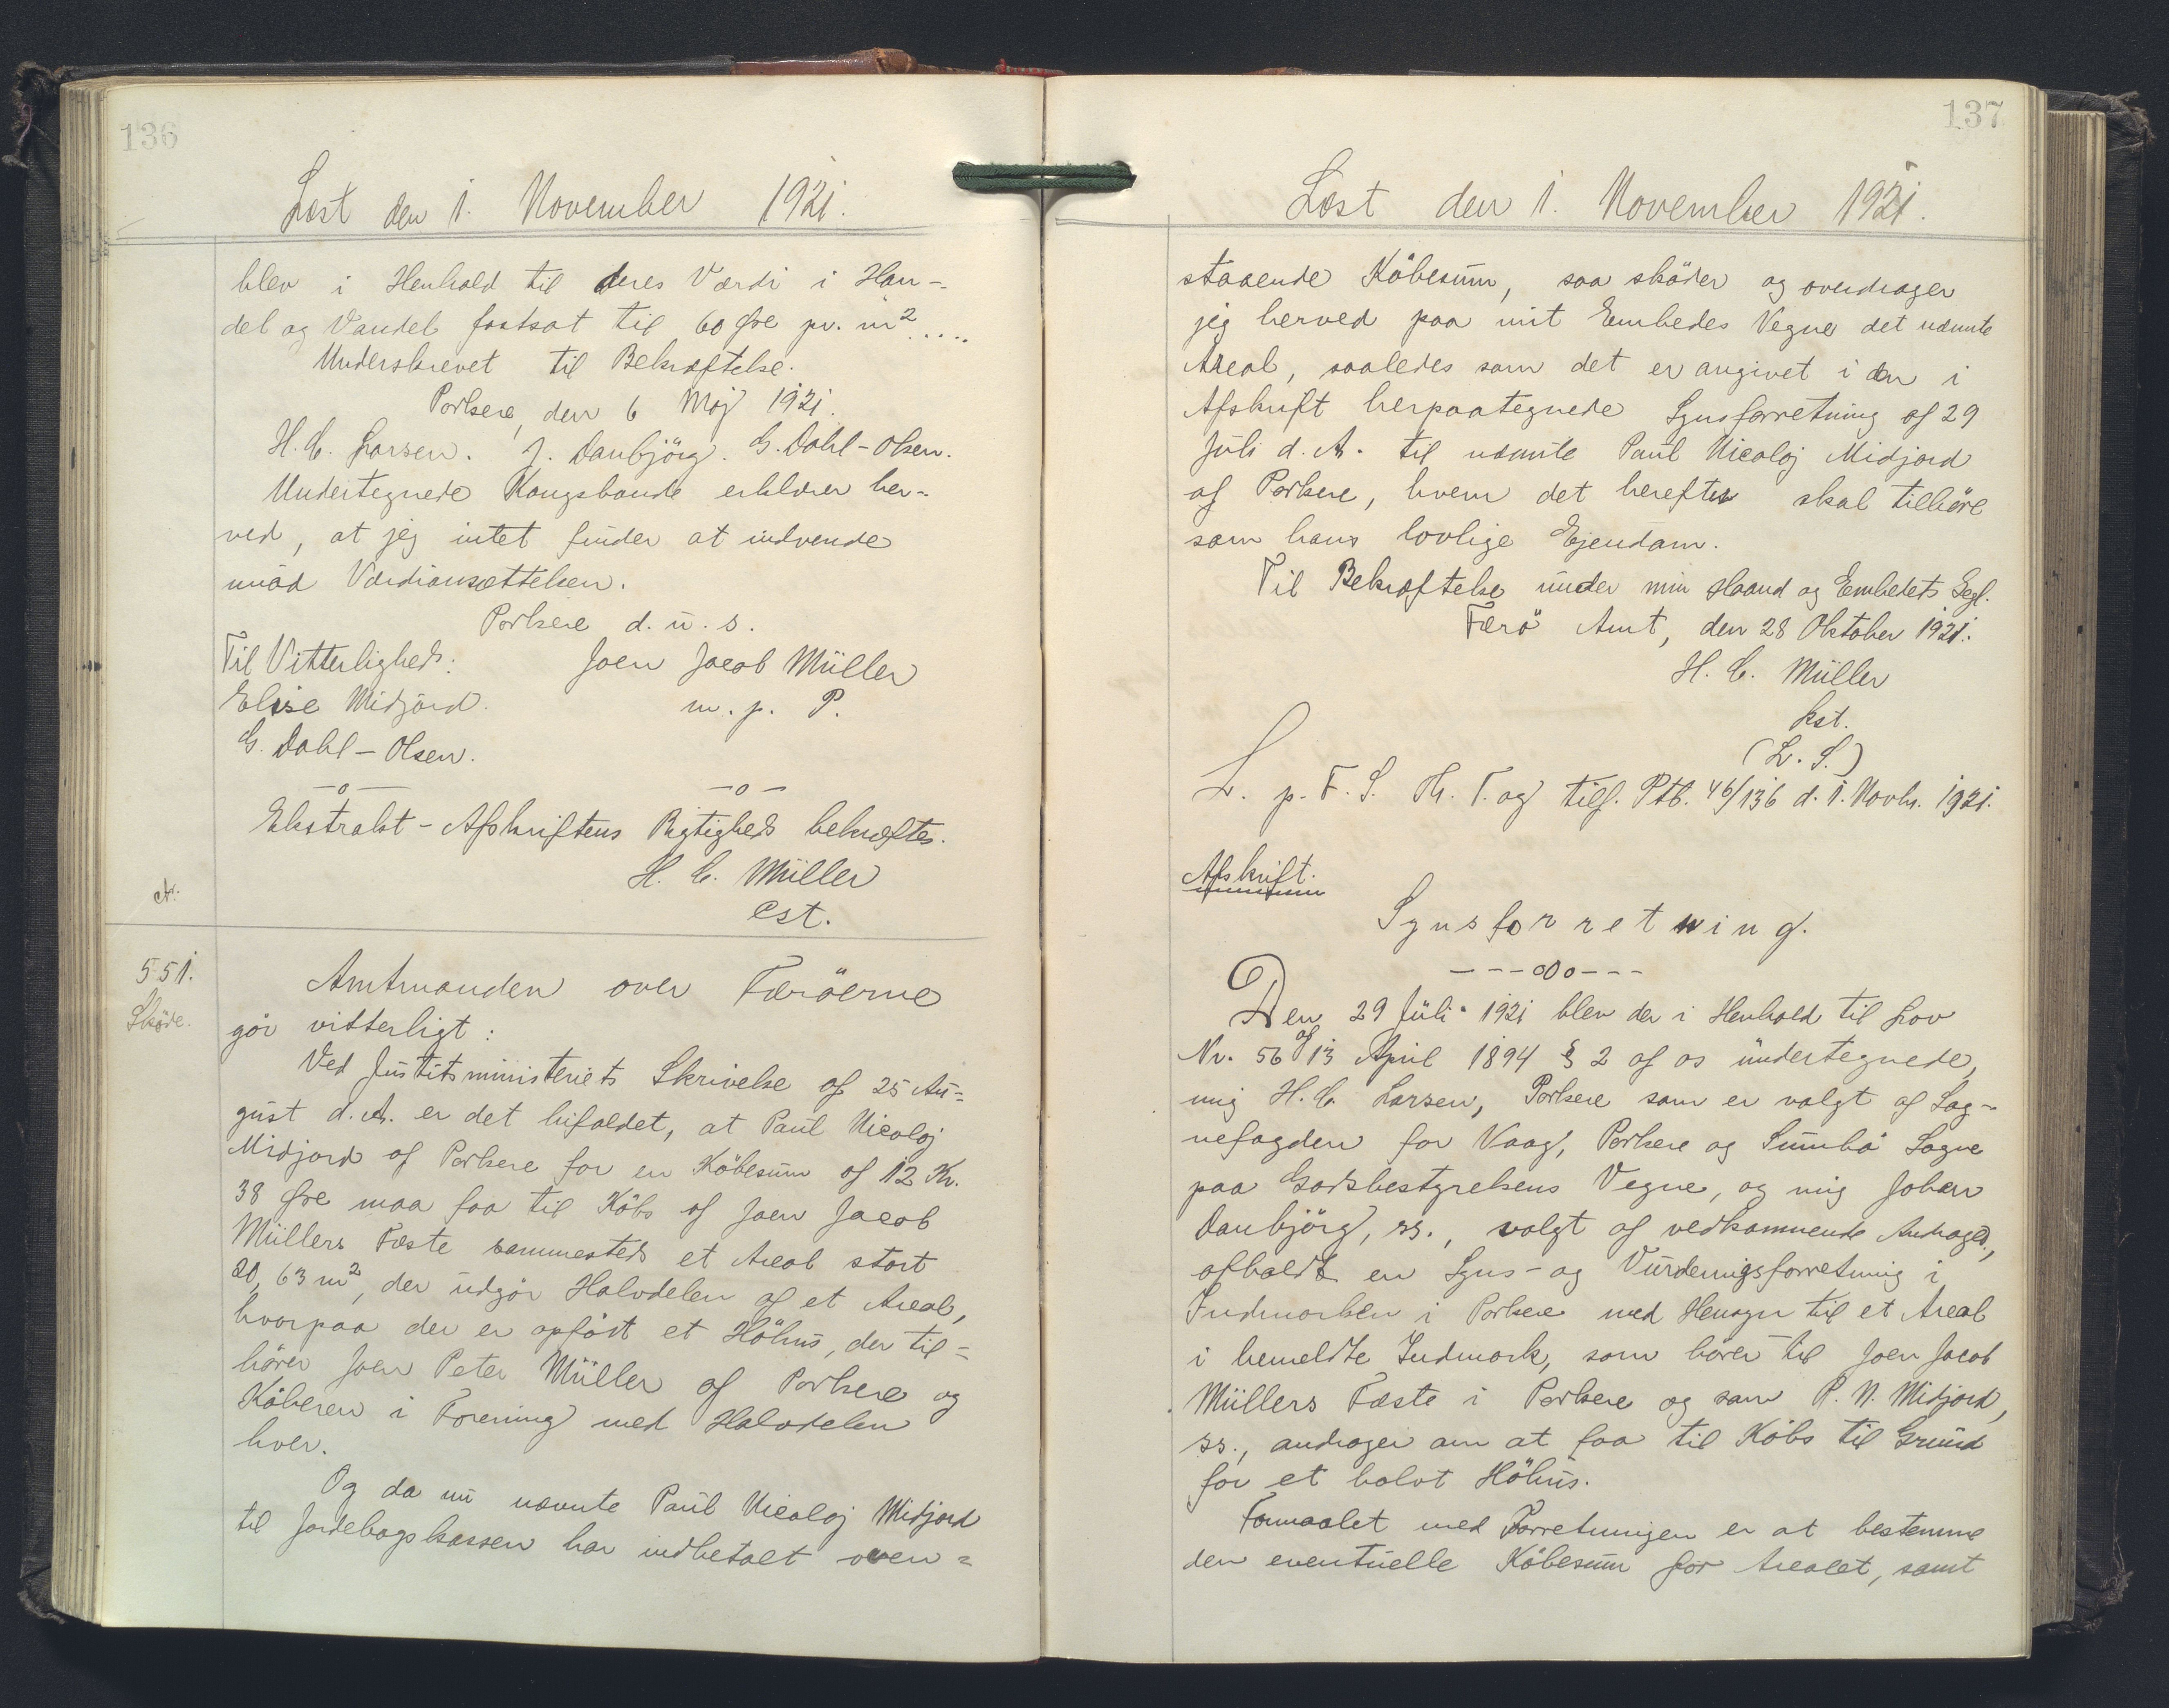 136
Læst den 1. November 1921.
blev i Henhold til deres Værdi i Han-
del og Vandel fastsat til 60 Øre pr. m² ....
Underskrevet til Bekræftelse.
Porkere, den 6 Maj 1921.
H. C. Larsen. J. Danbjörg. G. Dahl-Olsen.
Undertegnede Kongsbonde erklærer her-
ved, at jeg intet finder at indvende
mod Værdiansættelsen.
Porkere d. u. s.
Til Vitterlighed: Joen Jacob Müller
Elise Midjord. m. p. P.
G. Dahl-Olsen.
—o— —o—
Ekstrakt-Afskriftens Rigtighed bekræftes.
H. C. Müller
cst.
A.
551.
Sköde.
Amtmanden over Færöerne
gör vitterligt:
Ved Justitsministeriets Skrivelse af 25 Au-
gust d. A. er det bifaldet, at Paul Nicolaj
Midjord af Porkere for en Köbesum af 12 Kr.
38 Øre maa faa til Köbs af Joen Jacob
Müllers Fæste sammesteds et Areal stort
20,63 m², der udgör Halvdelen af et Areal,
hvorpaa der er opfört et Höhus, der til-
hörer Joen Peter Müller af Porkere og
Köberen i Forening med Halvdelen
hver.
Og da nu nævnte Paul Nicolaj Midjord
til Jordebogskassen har indbetalt oven-
137
Læst den 1. November 1921.
staaende Köbesum, saa sköder og overdrager
jeg herved paa mit Embedes Vegne det nævnte
Areal, saaledes som det er angivet i den i
Afskrift herpaategnede Synsforretning af 29
Juli d. A. til nævnte Paul Nicolaj Midjord
af Porkere, hvem det herefter skal tilhöre
som hans lovlige Ejendom.
Til Bekræftelse under min Haand og Embedets Segl.
Færö Amt, den 28 Oktober 1921.
H. C. Müller
kst.
(L. S.)
L. p. F. S. Th. T. og tilf. Ptb. 46/136 d. 1. Novbr. 1921.
Afskrift.
Synsforretning.
---oOo---
Den 29 Juli 1921 blev der i Henhold til Lov
Nr. 56 af 13 April 1894 § 2 af os undertegnede,
mig H. C. Larsen, Porkere som er valgt af Sog-
nefogden for Vaag, Porkere og Sumbö Sogne
paa Godsbestyrelsens Vegne, og mig Johan
Danbjörg, ss., valgt af vedkommende Andrager,
afholdt en Syns- og Vurderingsforretning i
Indmarken i Porkere med Hensyn til et Areal
i bemeldte Indmark, som hörer til Joen Jacob
Müllers Fæste i Porkere og som P. N. Midjord,
ss., andrager om at faa til Köbs til Grund
for et halvt Höhus.
Formaalet med Forretningen er at bestemme
den eventuelle Köbesum for Arealet, samt